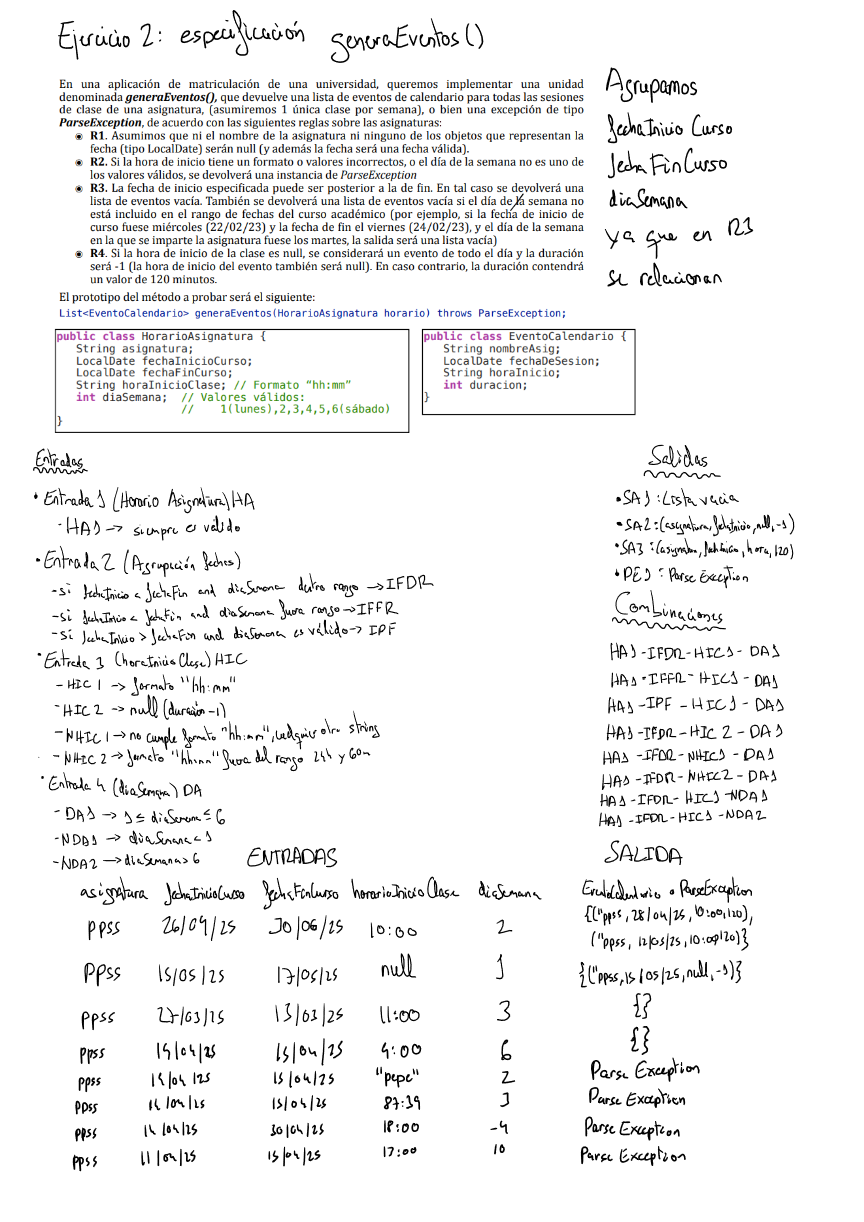 Ejercicio 2: especificación generaEventos()
En una aplicación de matriculación de una universidad, queremos implementar una unidad
denominada generaEventos(), que devuelve una lista de eventos de calendario para todas las sesiones
de clase de una asignatura, (asumiremos 1 única clase por semana), o bien una excepción de tipo
ParseException, de acuerdo con las siguientes reglas sobre las asignaturas:
◉ R1. Asumimos que ni el nombre de la asignatura ni ninguno de los objetos que representan la
fecha (tipo LocalDate) serán null (y además la fecha será una fecha válida).
◉ R2. Si la hora de inicio tiene un formato o valores incorrectos, o el día de la semana no es uno de
los valores válidos, se devolverá una instancia de ParseException
◉ R3. La fecha de inicio especificada puede ser posterior a la de fin. En tal caso se devolverá una
lista de eventos vacía. También se devolverá una lista de eventos vacía si el día de la semana no
está incluido en el rango de fechas del curso académico (por ejemplo, si la fecha de inicio de
curso fuese miércoles (22/02/23) y la fecha de fin el viernes (24/02/23), y el día de la semana
en la que se imparte la asignatura fuese los martes, la salida será una lista vacía)
◉ R4. Si la hora de inicio de la clase es null, se considerará un evento de todo el día y la duración
será -1 (la hora de inicio del evento también será null). En caso contrario, la duración contendrá
un valor de 120 minutos.
El prototipo del método a probar será el siguiente:
List<EventoCalendario> generaEventos(HorarioAsignatura horario) throws ParseException;
Agrupamos
fechaInicio Curso
fecha FinCurso
diaSemana
ya que en R3
se relacionan
public class HorarioAsignatura {
String asignatura;
LocalDate fechaInicioCurso;
LocalDate fechaFinCurso;
String horaInicioClase; // Formato "hh:mm"
int diaSemana; // Valores válidos:
// 1(lunes),2,3,4,5,6(sábado)
}
public class EventoCalendario {
String nombreAsig;
LocalDate fechaDeSesion;
String horaInicio;
int duracion;
}
Entradas
• Entrada 1 (Horario Asignatura) HA
- HA1 -> siempre es válido
• Entrada 2 (Agrupación fechas)
- si fechaInicio < fechaFin and diaSemana dentro rango -> IFDR
- si fechaInicio < fechaFin and diaSemana fuera rango -> IFFR
- Si fechaInicio > fechaFin and diaSemana es válido -> IPF
• Entrada 3 (horaInicioClase) HIC
- HIC 1 -> formato "hh:mm"
- HIC 2 -> null (duración -1)
- NHIC 1 -> no cumple formato "hh:mm", cualquier otro string
- NHIC 2 -> formato "hh:mm" fuera del rango 24h y 60m
• Entrada 4 (diaSemana) DA
- DA1 -> 1 ≤ diaSemana ≤ 6
- NDA1 -> diaSemana < 1
- NDA2 -> diaSemana > 6
Salidas
• SA1 : Lista vacia
• SA2 : (asignatura, fechaInicio, null, -1)
• SA3 : (asignatura, fechaInicio, hora, 120)
• PE1 : Parse Exception
Combinaciones
HA1 - IFDR - HIC1 - DA1
HA1 - IFFR - HIC1 - DA1
HA1 - IPF - HIC1 - DA1
HA1 - IFDR - HIC 2 - DA1
HA1 - IFDR - NHIC1 - DA1
HA1 - IFDR - NHIC2 - DA1
HA1 - IFDR - HIC1 - NDA1
HA1 - IFDR - HIC1 - NDA2
ENTRADAS SALIDA
asignatura fechaInicioCurso fechaFinCurso horarioInicioClase diaSemana EventoCalendario o ParseException
ppss 26/04/25 30/06/25 10:00 2 {("ppss, 28/04/25, 10:00, 120),
("ppss, 12/05/25, 10:00, 120)}
PPSS 15/05/25 17/05/25 null 1 {("ppss, 15/05/25, null, -1)}
ppss 27/03/25 13/03/25 11:00 3 {}
ppss 14/04/25 15/04/25 9:00 6 {}
ppss 14/04/25 15/04/25 "pepe" 2 Parse Exception
ppss 14/04/25 15/04/25 87:39 3 Parse Exception
ppss 14/04/25 30/04/25 18:00 -4 Parse Exception
ppss 11/04/25 15/04/25 17:00 10 Parse Exception